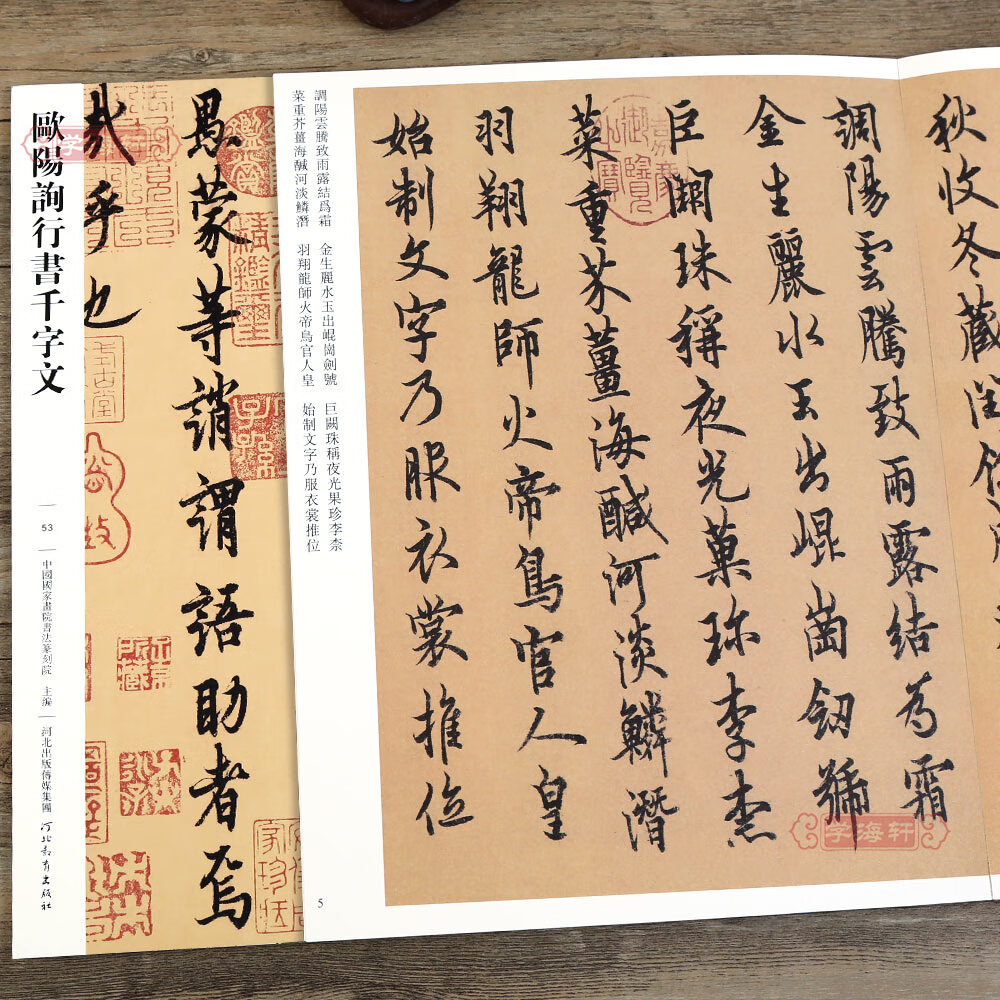 歐陽詢行書千字文
53
中國國家畫院書法篆刻院 主编
河北出版傳媒集團 河北教育出版社
愚蒙等誚謂語助者焉
哉乎也
調陽雲騰致雨露結爲霜 金生麗水玉出崐崗劍號 巨闕珠稱夜光果珍李柰
菜重芥薑海醎河淡鱗潛 羽翔龍師火帝鳥官人皇 始制文字乃服衣裳推位
秋收冬藏閏餘
調陽雲騰致雨露結為霜
金生麗水玉出崐崗劒號
巨闕珠稱夜光菓珎李柰
菜重芥薑海醎河淡鱗潛
羽翔龍師火帝鳥官人皇
始制文字乃服衣裳推位
5
学海轩